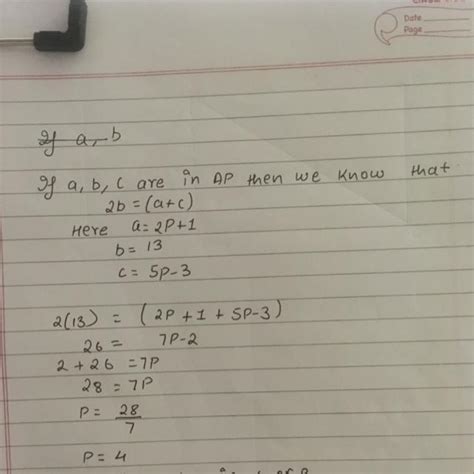 Date
Page
If a, b
If a, b, c are in AP then we know that
2b = (a+c)
Here a = 2P+1
b = 13
c = 5P-3
2(13) = (2P+1+5P-3)
26 = 7P-2
2+26 = 7P
28 = 7P
P = 28/7
P = 4